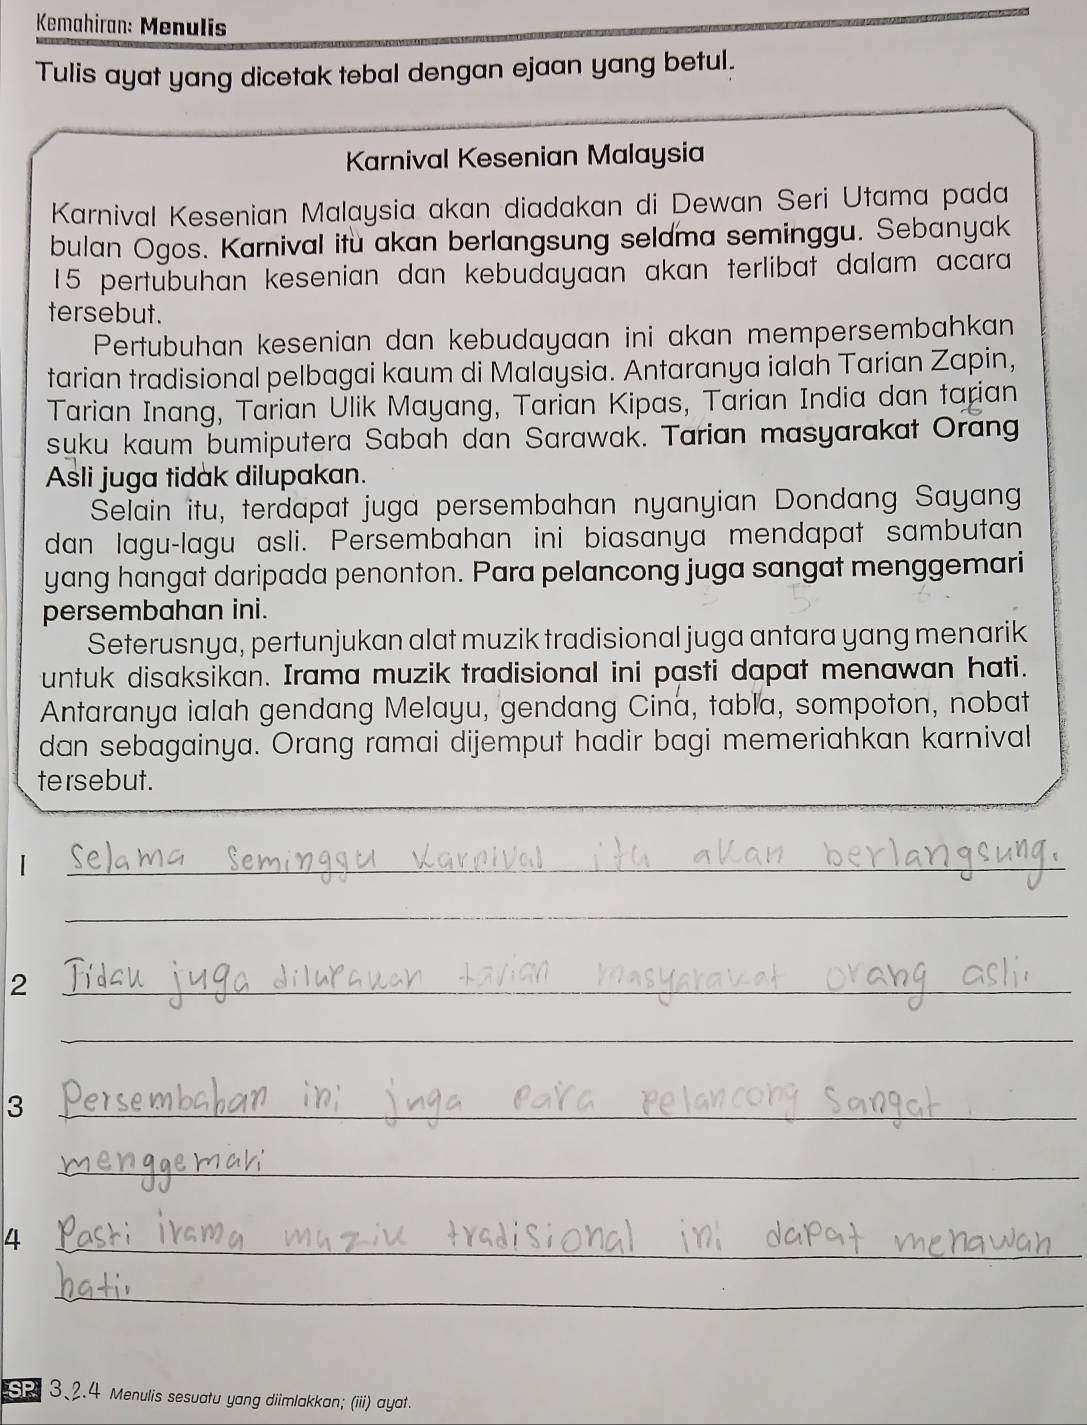 Kemahiran: Menulis
Tulis ayat yang dicetak tebal dengan ejaan yang betul.
Karnival Kesenian Malaysia
Karnival Kesenian Malaysia akan diadakan di Dewan Seri Utama pada
bulan Ogos. Karnival itu akan berlangsung selama seminggu. Sebanyak
15 pertubuhan kesenian dan kebudayaan akan terlibat dalam acara
tersebut.
Pertubuhan kesenian dan kebudayaan ini akan mempersembahkan
tarian tradisional pelbagai kaum di Malaysia. Antaranya ialah Tarian Zapin,
Tarian Inang, Tarian Ulik Mayang, Tarian Kipas, Tarian India dan tarian
suku kaum bumiputera Sabah dan Sarawak. Tarian masyarakat Orang
Asli juga tidak dilupakan.
Selain itu, terdapat juga persembahan nyanyian Dondang Sayang
dan lagu-lagu asli. Persembahan ini biasanya mendapat sambutan
yang hangat daripada penonton. Para pelancong juga sangat menggemari
persembahan ini.
Seterusnya, pertunjukan alat muzik tradisional juga antara yang menarik
untuk disaksikan. Irama muzik tradisional ini pasti dapat menawan hati.
Antaranya ialah gendang Melayu, gendang Cina, tabla, sompoton, nobat
dan sebagainya. Orang ramai dijemput hadir bagi memeriahkan karnival
tersebut.
1 Selama seminggu karnival itu akan berlangsung.
2 Tidak juga dilupakan tarian masyarakat orang asli.
3 Persembahan ini juga para pelancong sangat
menggemari
4 Pasti irama muzik tradisional ini dapat menawan
hati.
SP 3.2.4 Menulis sesuatu yang diimlakkan; (iii) ayat.